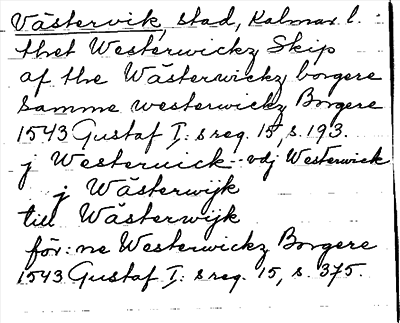 Västervik, stad, Kalmar l.:
thet Westerwickz Skip
af the Wästerwickz borgere
samme westerwickz Borgere
1543 Gustaf I: s reg. 15, s. 193.
j Westeruick - vdj Westerwick
j Wästerwijk
till Wästerwijk
för:ne Westerwickz Borgere
1543 Gustaf I: s reg. 15, s. 375.